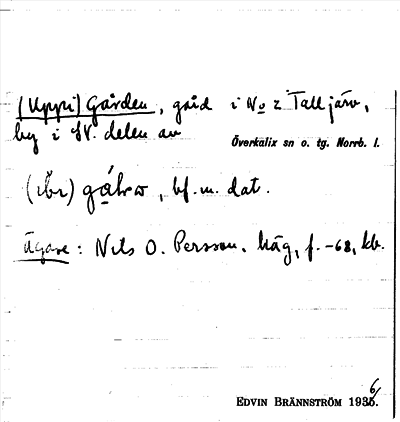 (Uppi) Gården, gård i No 2 Talljärv,
by i SV. delen av
Överkalix sn o. tg. Norrb. l.
bf. m. dat.
Ägare: Nils O. Persson. häg, f. -68, kb.
EDVIN BRÄNNSTRÖM 1936.